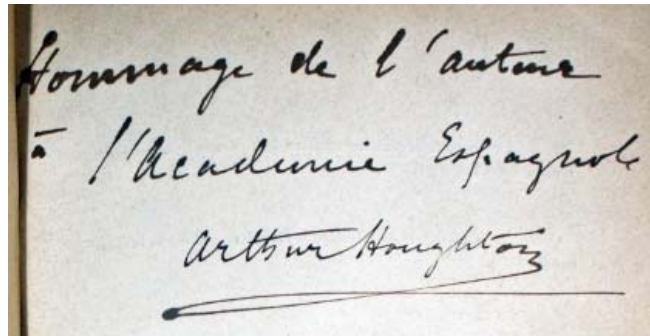 Hommage de l'auteur
à l'Academie Espagnole
Arthur Houghton